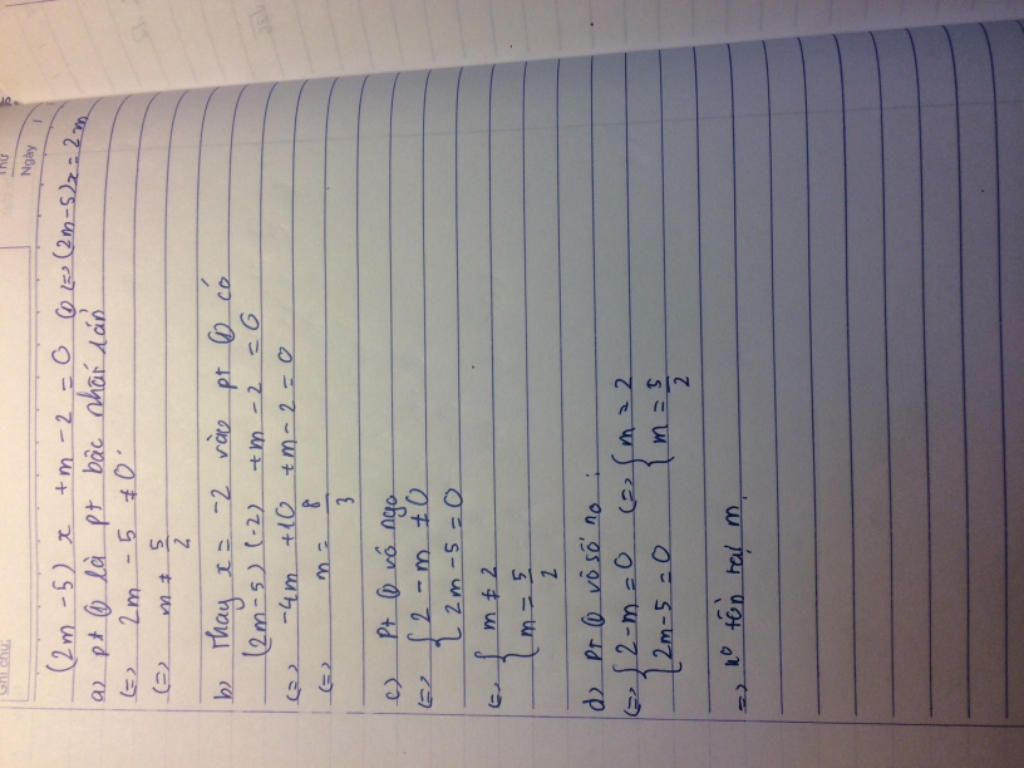 Ghi chú:
Thứ
Ngày
(2m - 5) x + m - 2 = 0 ① (=) (2m - 5)x = 2 m
a) pt ① là pt bậc nhất 1 ẩn
(=) 2m - 5 ≠ 0
(=) m ≠ 5/2
b) Thay x = -2 vào pt ① có
(2m - 5) (-2) + m - 2 = 0
(=) -4m + 10 + m - 2 = 0
(=) m = 8/3
c) Pt ① vô ngo
(=) { 2 - m ≠ 0
{ 2m - 5 = 0
(=) { m ≠ 2
{ m = 5/2
d) Pt ① vô số no :
(=) { 2 - m = 0 (=) { m = 2
{ 2m - 5 = 0 { m = 5/2
=> tồn tại m